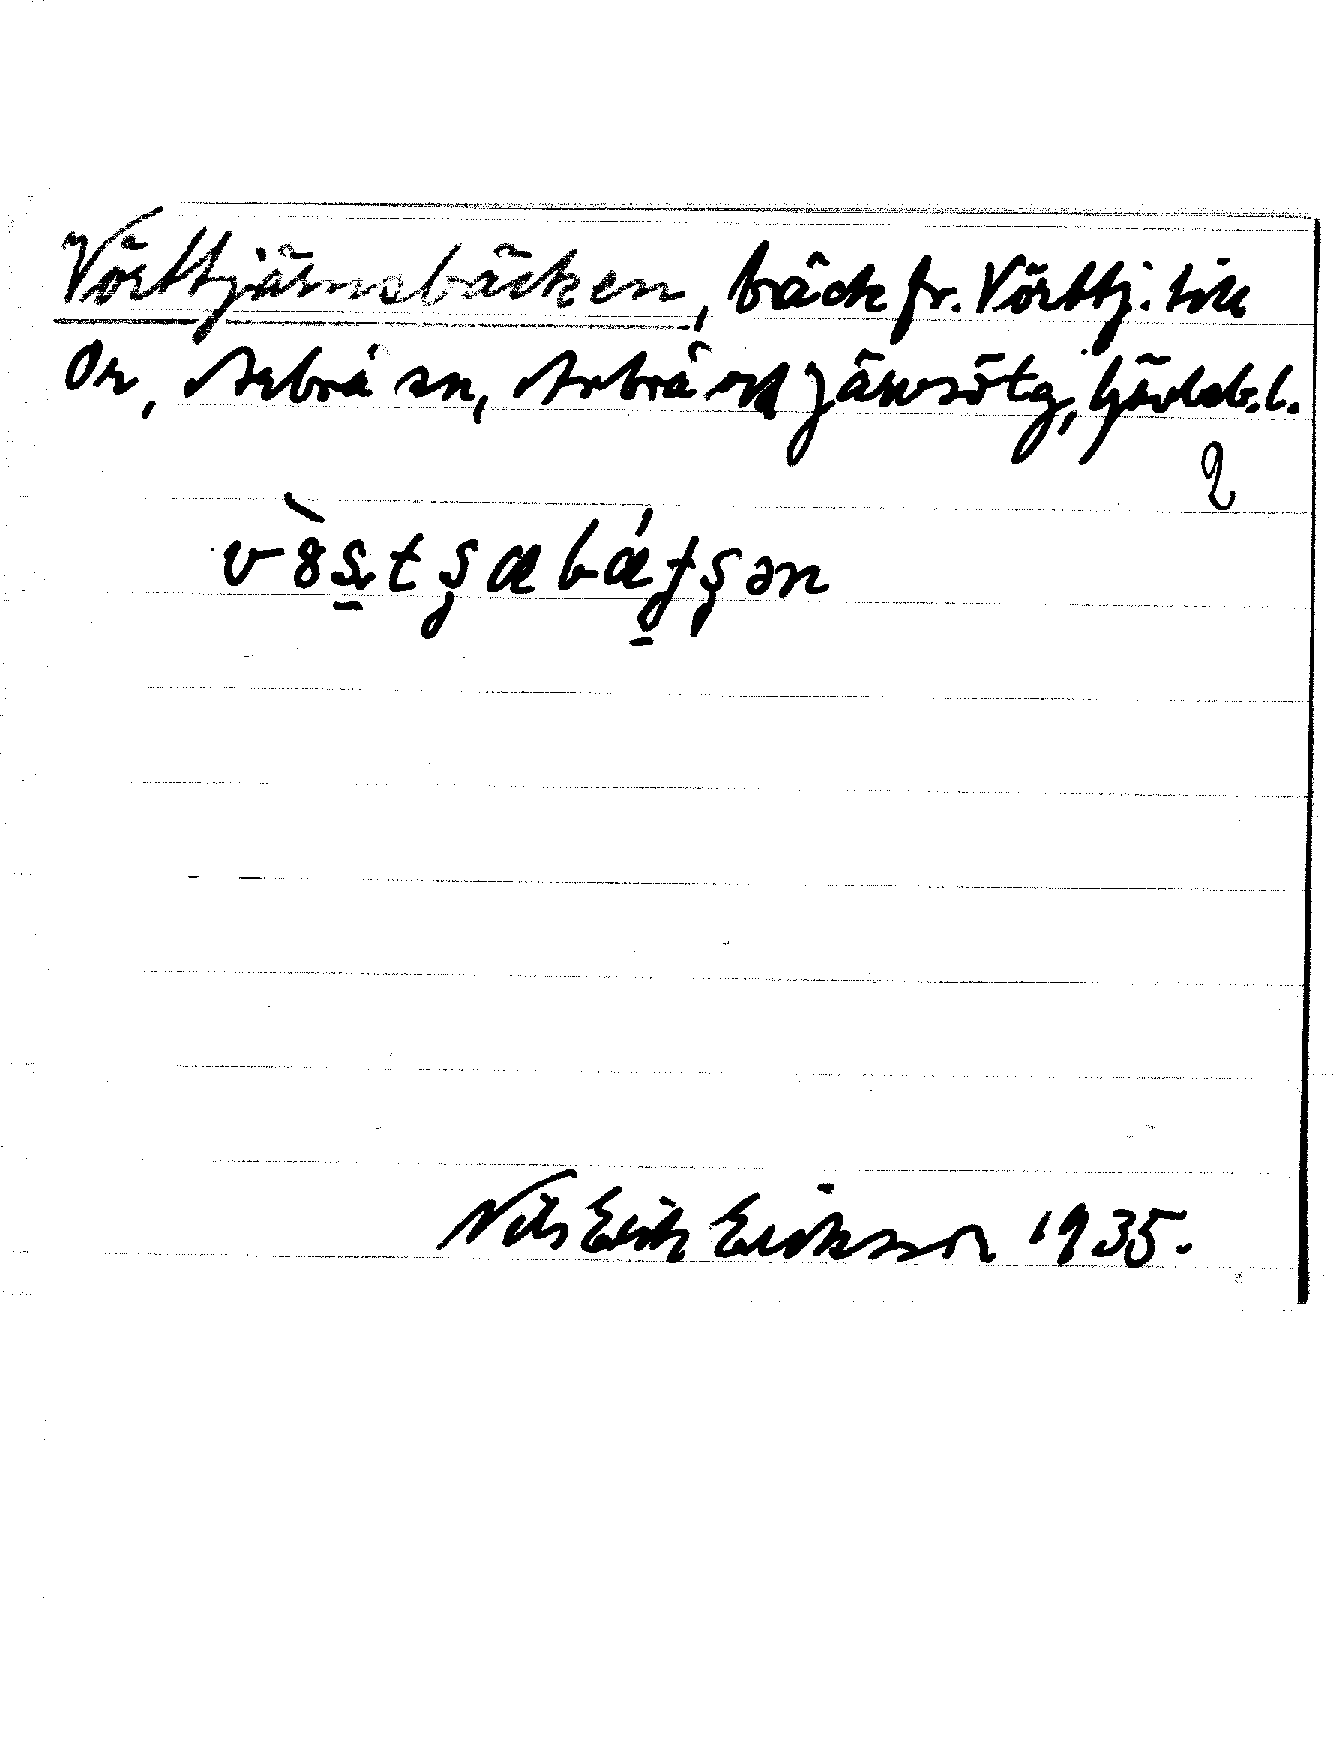 Vörttjärnsbäcken, bäck fr. Vörttj. till
Or, Arbrå sn, Arbrå och Järvsö tg, Gävleb. l.
2
Nils Erik Eriksson 1935.